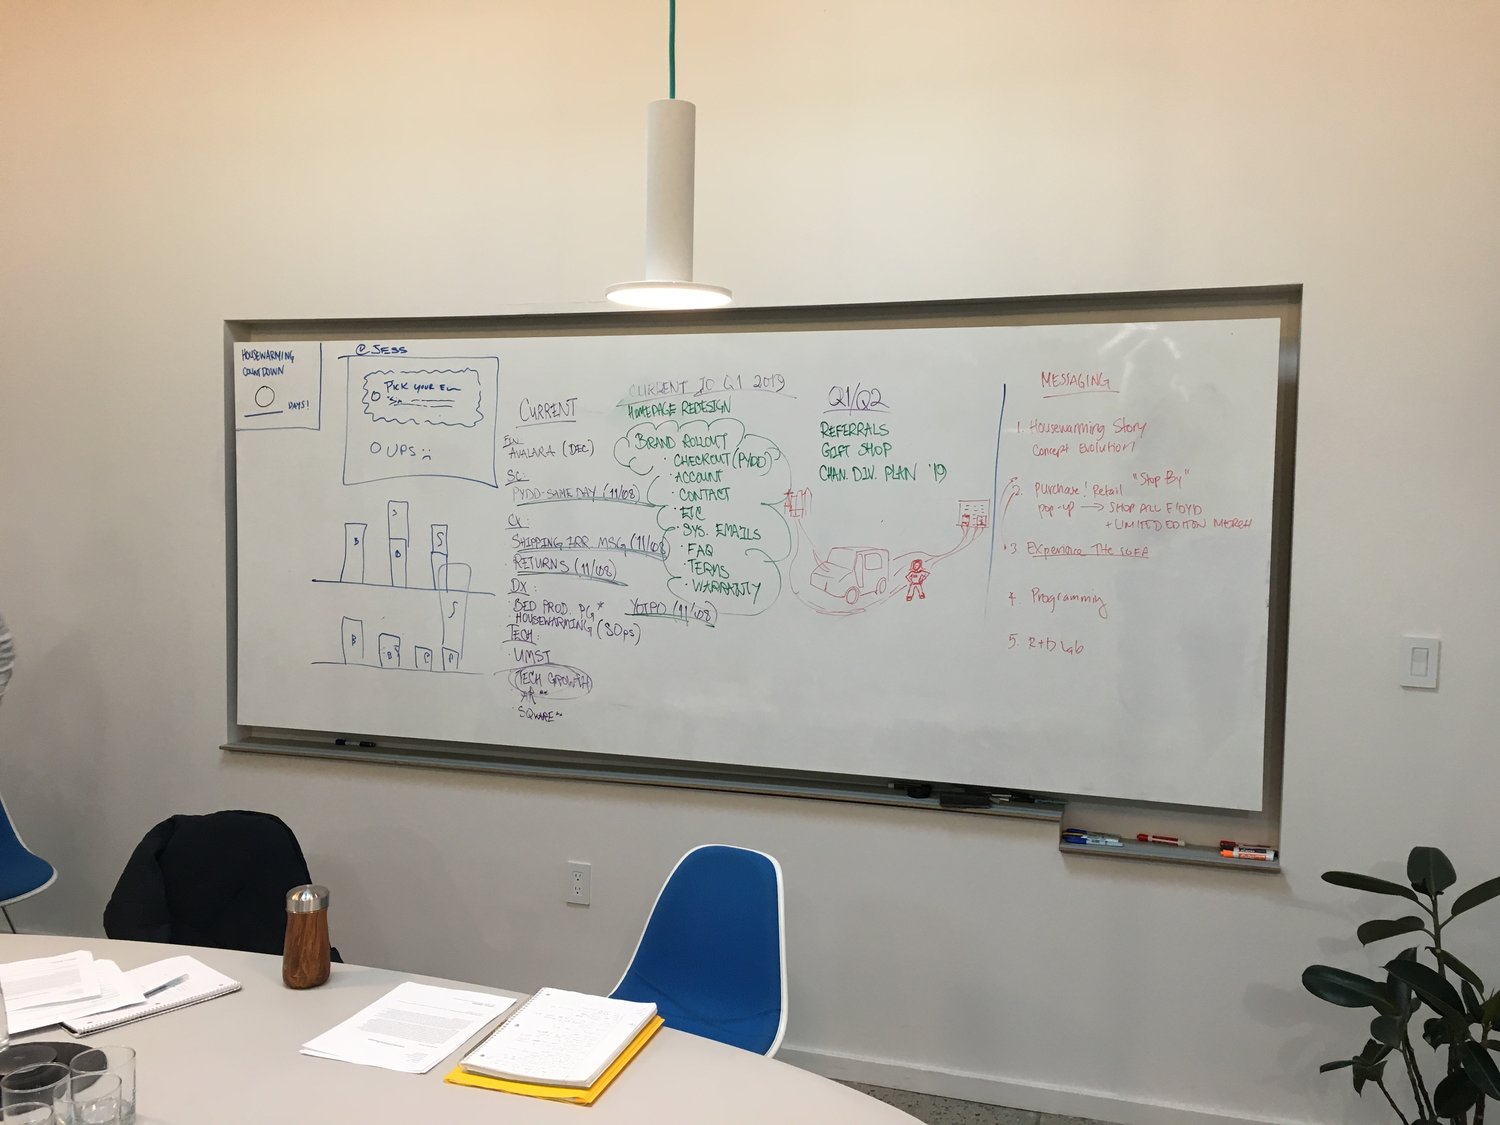 HOUSEWARMING
COUNTDOWN
DAYS!
@JESS
PICK YOUR
UPS :(
B
S
B
S
S
B
B
C
P
CURRENT
FIN:
AVALARA (DEC)
SC:
PYDD-SAME DAY (11/08)
CX:
SHIPPING ERR. MSG (11/08
RETURNS (11/08)
DX:
BED PROD. PG*
HOUSEWARMING (SOPS)
YOTPO (11/08)
TECH:
· UMSI
TECH GROWTH
· AR**
· SQUARE**
CURRENT TO Q1 2019
HOMEPAGE REDESIGN
BRAND ROLLOUT
· CHECKOUT (PYDD)
· ACCOUNT
· CONTACT
· ETC
· SYS. EMAILS
· FAQ
· TERMS
· WARRANTY
Q1/Q2
REFERRALS
GIFT SHOP
CHAN. DIV. PLAN '19
MESSAGING
1. Housewarming Story
Concept Evolution?
"Stop By"
2. Purchase! Retail
pop-up → SHOP ALL FLOYD
+ LIMITED EDITON MERCH
3. Experience The SOFA
4. Programming
5. R+D Lab